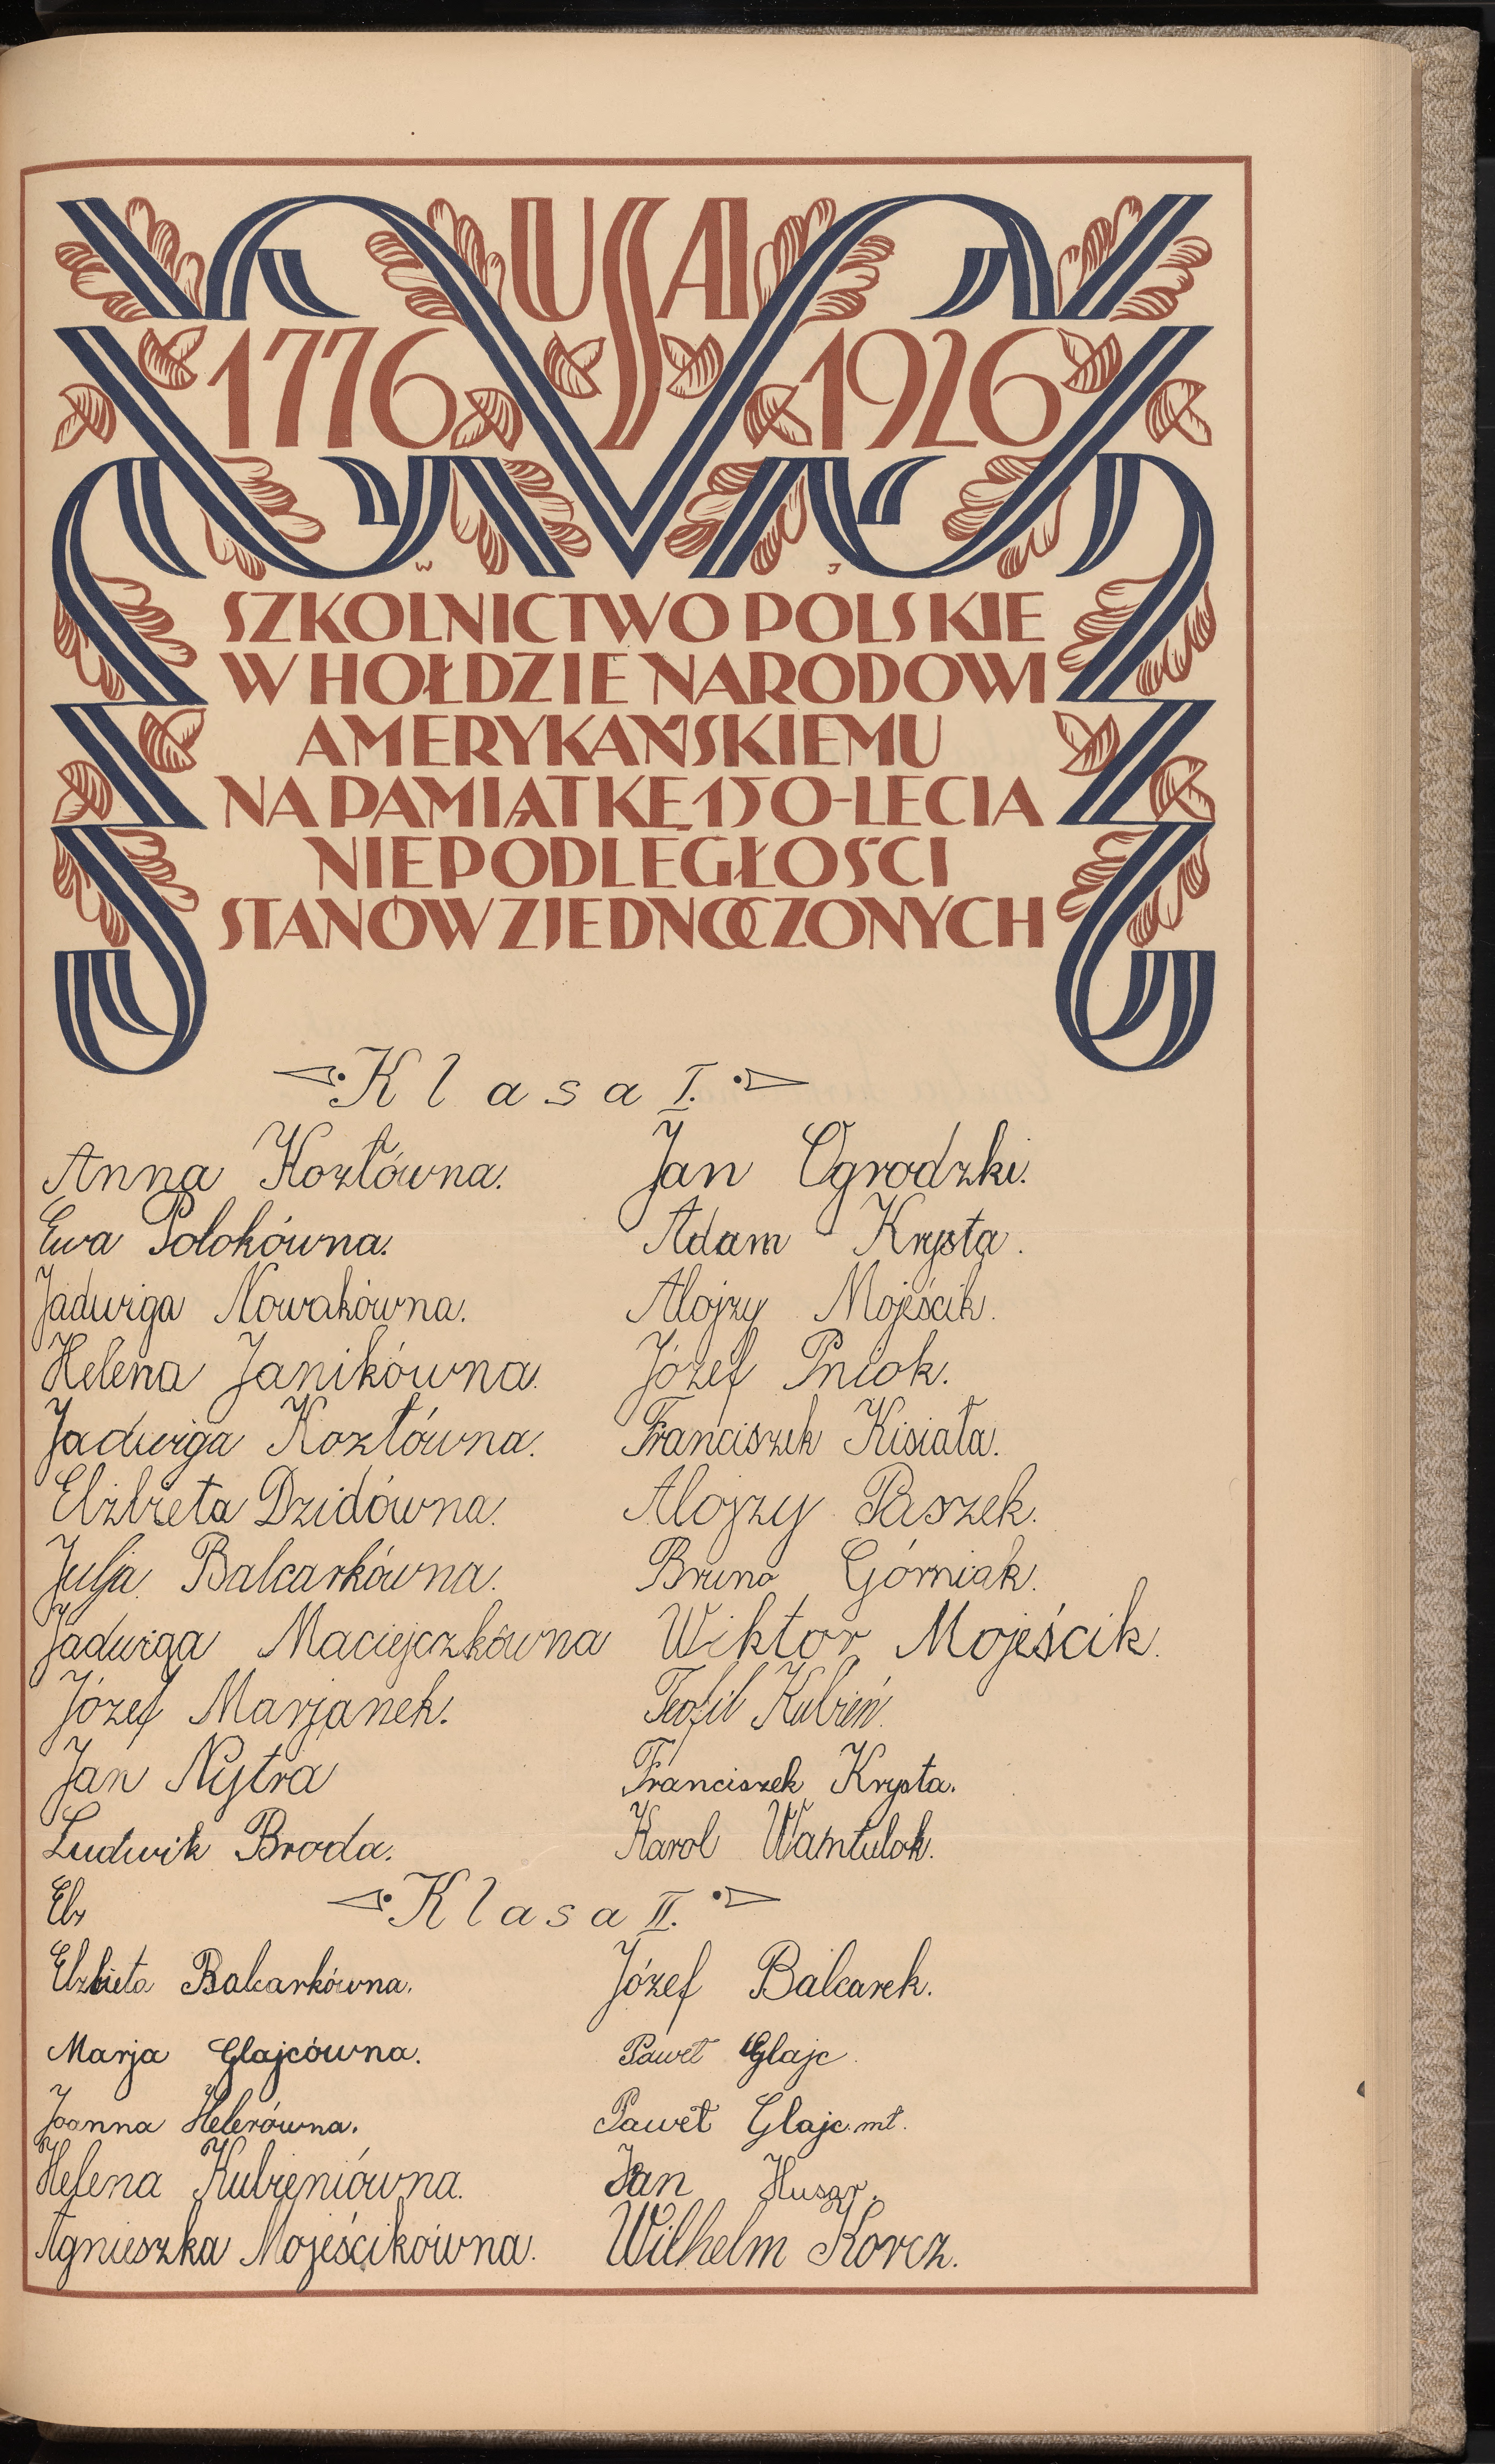 USA
1776 1926
W J
SZKOLNICTWO POLSKIE
W HOŁDZIE NARODOWI
AMERYKAŃSKIEMU
NA PAMIĄTKĘ 150-LECIA
NIEPODLEGŁOŚCI
STANÓW ZJEDNOCZONYCH
Klasa I.
Anna Kozłówna. Jan Ogrodzki.
Ewa Polokówna. Adam Krysta.
Jadwiga Nowakówna. Alojzy Mojeścik.
Helena Janikówna. Józef Pniok.
Jadwiga Kozłówna. Franciszek Kisiała.
Elżbieta Dzidówna. Alojzy Paszek.
Julja Balcarkówna. Bruno Górniak.
Jadwiga Maciejczkówna Wiktor Mojeścik.
Józef Marjanek. Teofil Kubień.
Jan Nytra Franciszek Krysta.
Ludwik Broda. Karol Wantulok.
Elż
Klasa II.
Elżbieta Balcarkówna. Józef Balcarek.
Marja Glajcówna. Paweł Glajc.
Joanna Helerówna. Paweł Glajc mł.
Helena Kubieniówna. Jan Husar.
Agnieszka Mojeścikówna. Wilhelm Korcz.